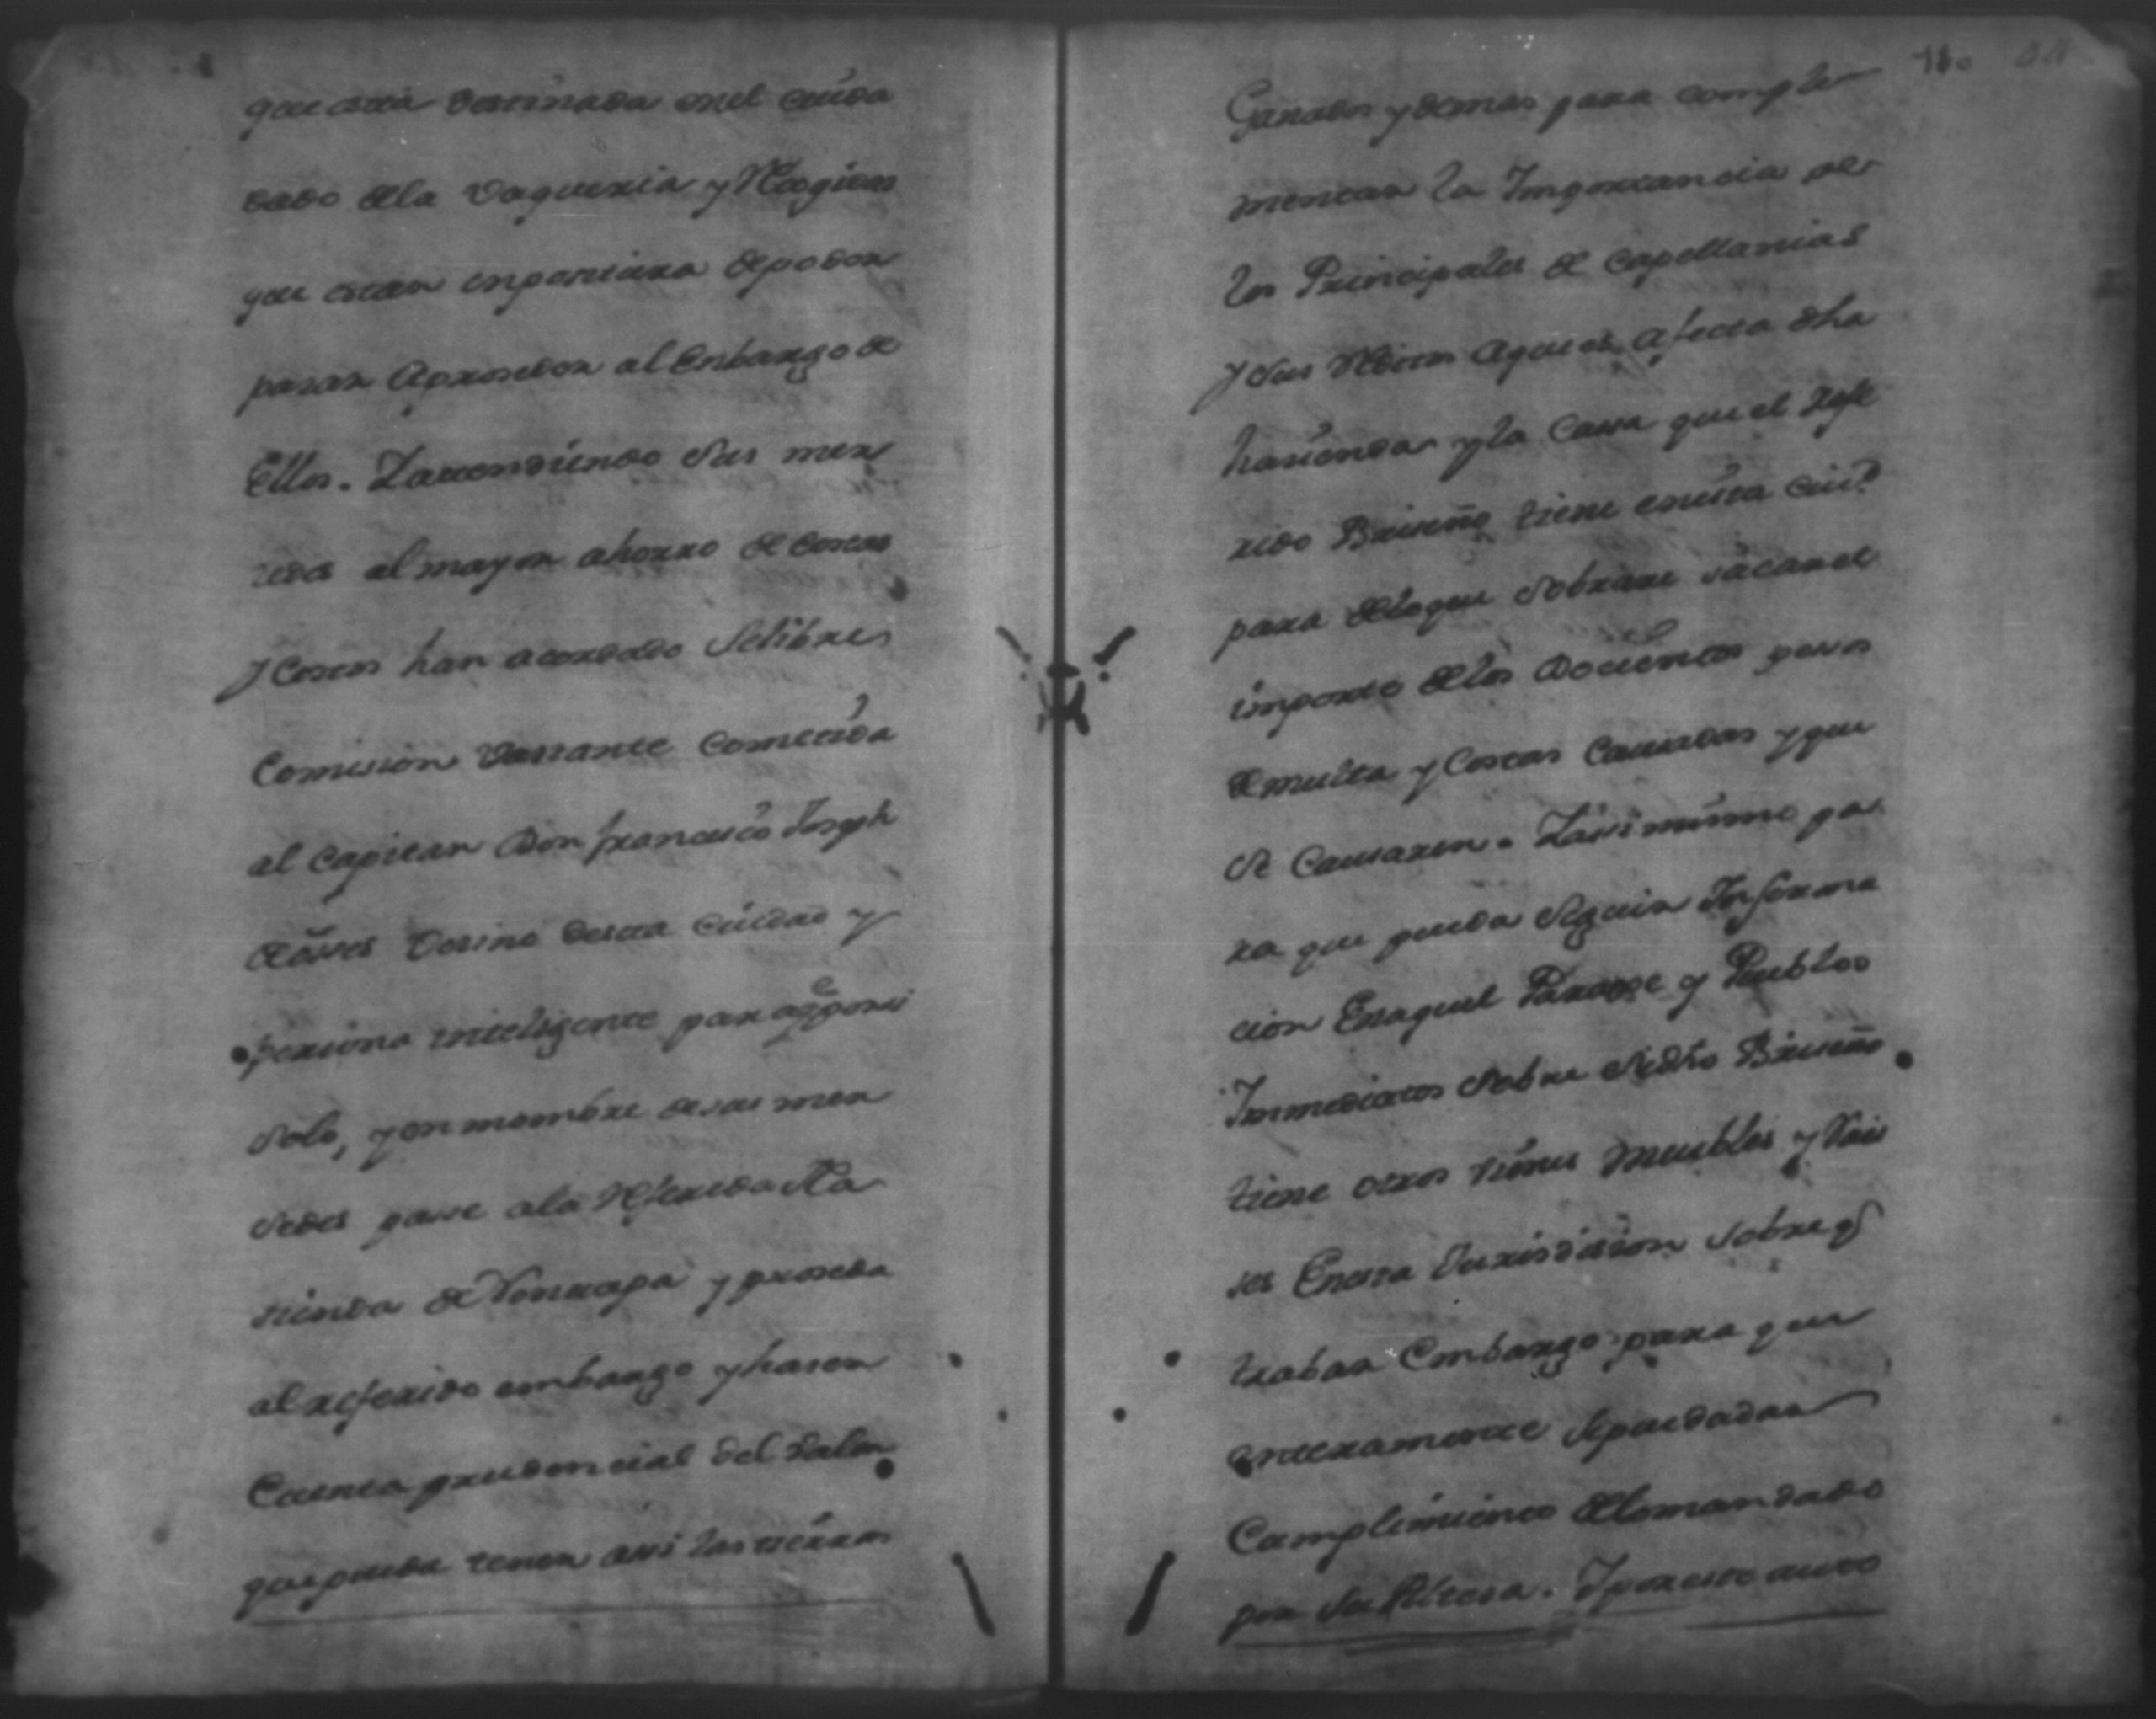 que está destinada en el cuida
dado de la vaqueria y Negros
que estan en
pasar aproseder al Enbargo de
Ellos. Y atendiendo sus mer
sedes al mayor ahorro de costas
y Costos han acordado Selibre
Comision bastante Cometida
al Capitan Don francisco Joseph
Vesino desta ciudad y
persona inteligente para q̃ por si
solo, y en nombre de sus mer
sedes passe ala Referida Ha
sienda de y proseda
al referido embargo y haser
Cuenta prudencial del valor
que pueda tener assi las tierras
110
Ganados y demas para comple
mentar la Importancia de
los Principales de capellanias
y sus Reditos aque es afecta dha
hasienda y la Cassa que el Refe
rido Briseño tiene en esta Ciud.
para de lo que sobrare sacar el
importe de los Docientos pesos
de multa y Costas Causadas y que
se Causaren. Y assi mismo pa
ra que pueda seguir Informa
cion En aquel Paraxe y Pueblos
Immediatos sobre si dho Briseño
tiene otros vienes muebles y Rai
ses En esta Jurisdision sobre q̃
trabar Embargo para que
enteramente se pueda dar
Cumplimiento de lo mandado
por su Alteza. Y por este auto